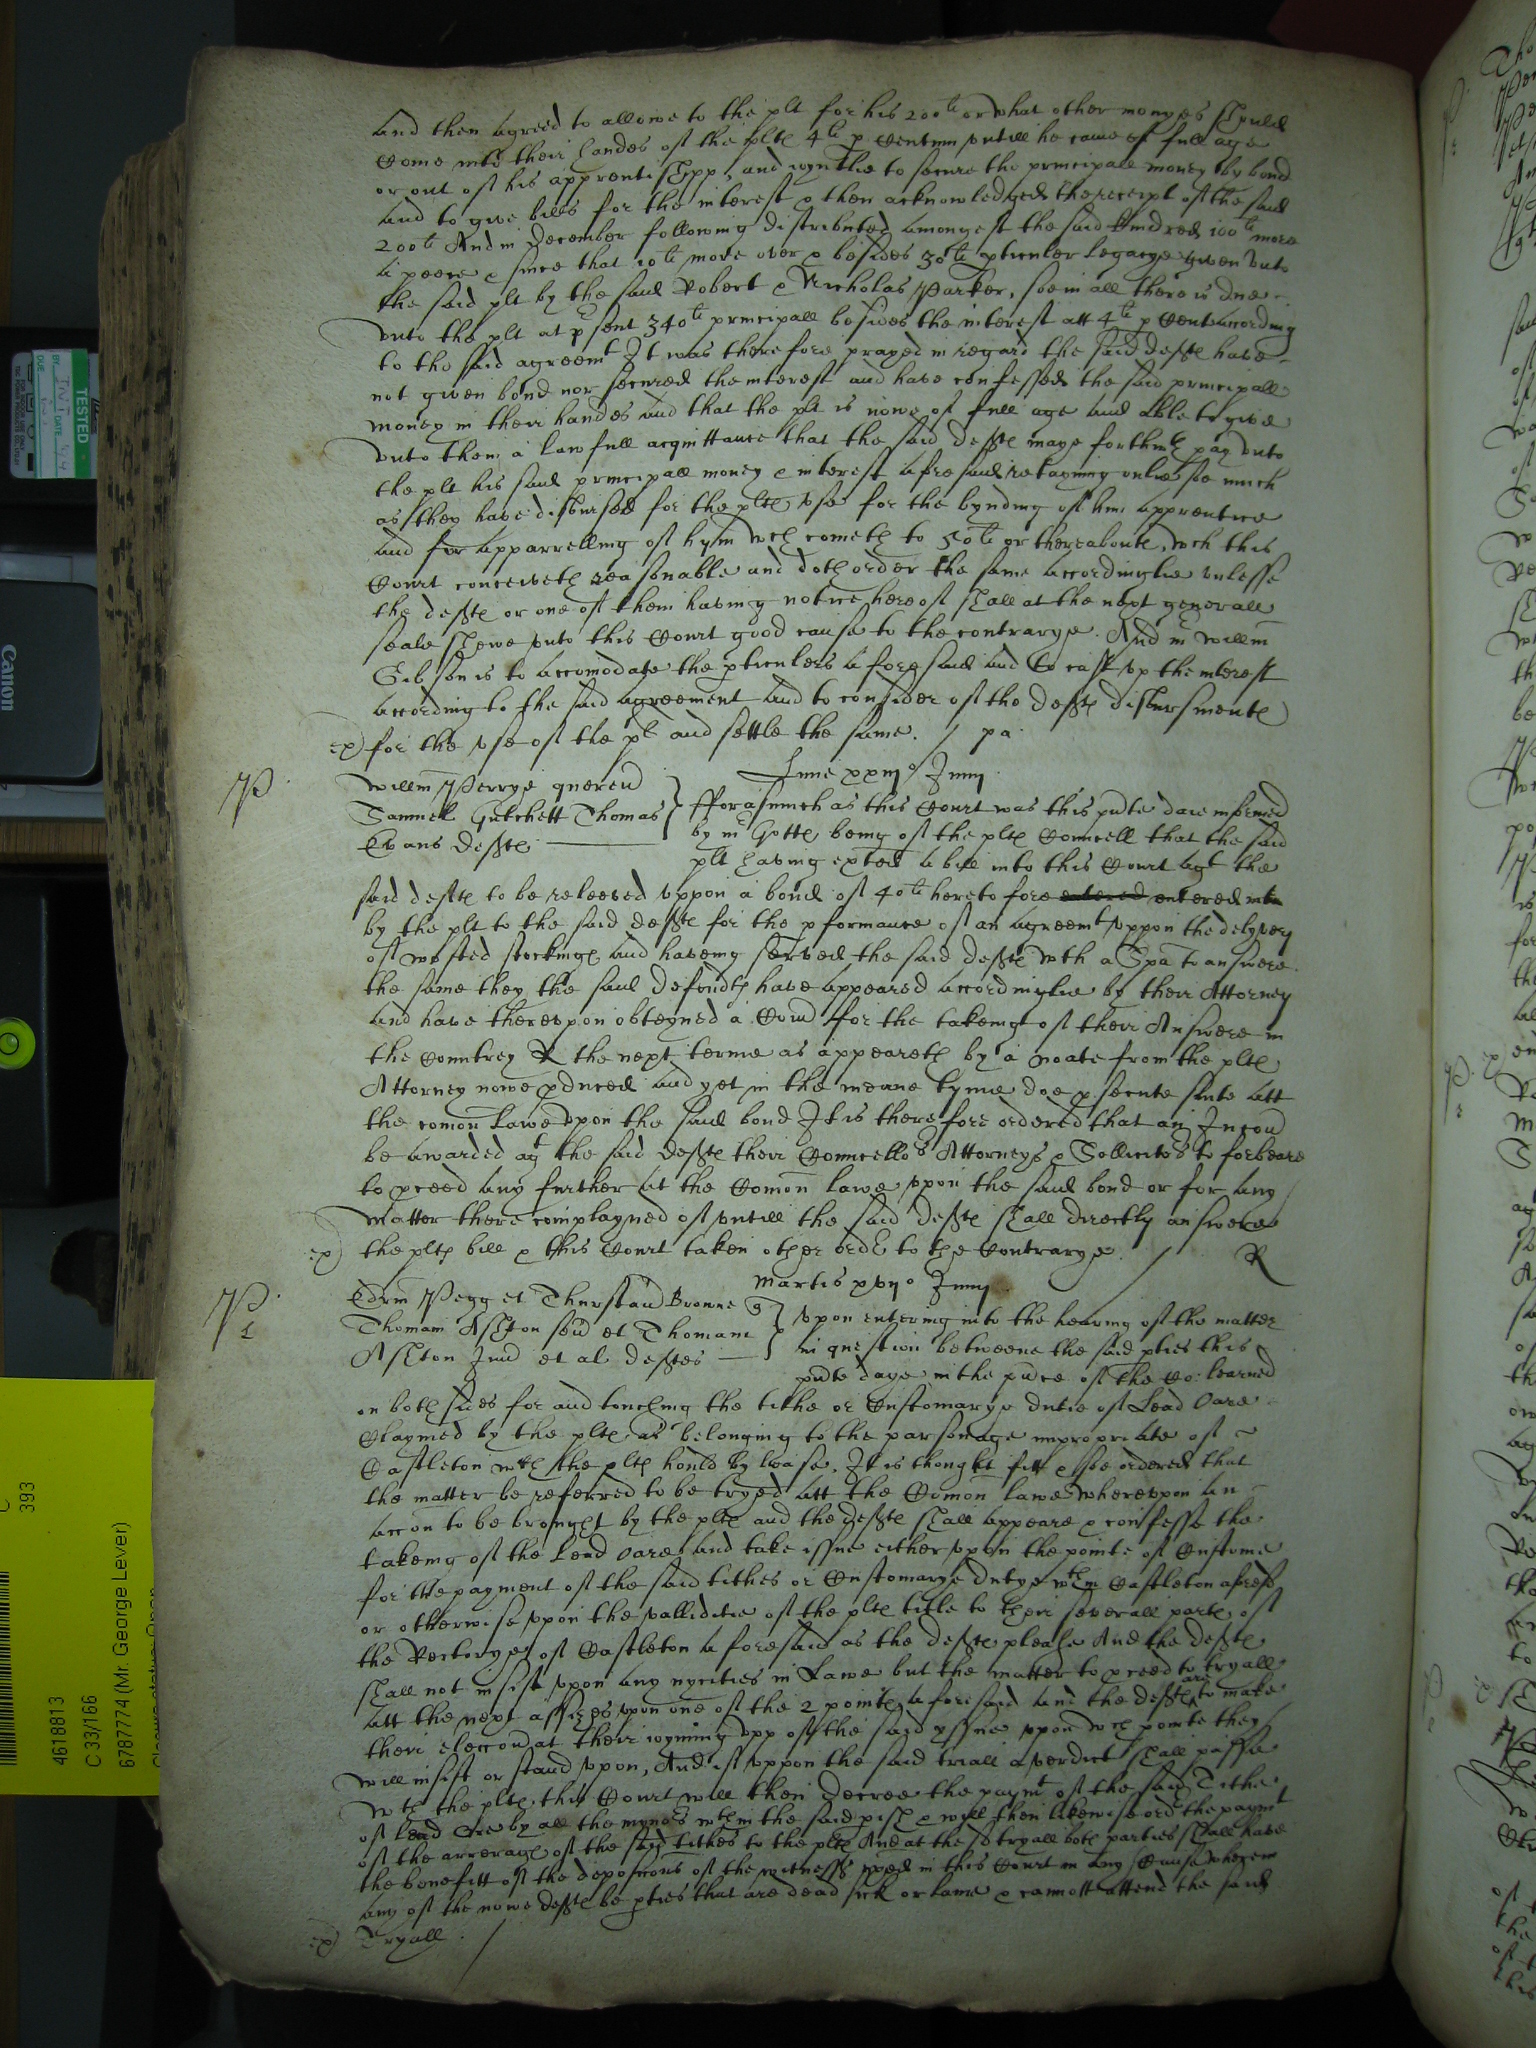 and then agreed to allowe to the plt for his 200li or what other monyes should
Come into their handes of the plts 4li p Centum untill he came of full age
or out of his apprentishipp, and wynthie to secure the principall money by bond
and to give bills for the interest & then acknowledged the receipt of the said
200li And in December following distributed amongest the said kindred 100li more
a peece & since that 10li more over & besides 30li pticuler legacye given unto
the said plt by the said Robert & Nicholas Parker, soe in all there is due
unto the plt at psent 340li principall besides the interest att 4li p Cent according
to the said agreemt It was therefore prayed in regard the said defts have
not given bond nor secured the interest and have confessed the said principall
money in their handes and that the plt is nowe of full age and able to give
unto them a lawfull acquittance that the said defts maye forthwth pay unto
the plt his said principall money & interest aforesaid retayning onlie soe much
as they have disbursed for the plts use for the bynding of him apprentice
and for apparrelling of hym wch cometh to 50li or thereaboute, wch this
Court conceiveth reasonable and doth order the same accordinglie unlesse
the defts or one of them having notice hereof shall at the next generall
seale shewe unto this Court good cause to the contrarye. And mr Willm
Gibson is to accomodate the pticulers aforesaid and to cast up the interest
according to the said agreement and to consider of the defts disbursmente
ex) for the use of the plt and settle the same. / pa
P
Lune xxiijo Junij
Willm Perrye quereñ
Samuel Gutchett Thomas
Evans defts
fforasmuch as this Court was this pnte daie informed
by mr Gotte, being of the plts Councell that the said
plt having exted a bill into this Court agt the
said defts to be releeved uppon a bond of 40li heretofore entered entered into
by the plt to the said defts for the pformance of an agreemt uppon the delyvery
of wosted stockings and haveing served the said defts wth a Spa to answere
the same they the said defendts have appeared accordinglie by their Attorney
and have thereupon obteyned a Com for the takeing of their Answere in
the Countrey R the next terme as appeareth by a noate from the plts
Attorney nowe pduced and yet in the meane tyme doe psecute suite att
the comon Lawe upon the said bond It is therefore ordered that an Incon
be awarded agt the said defts their Councellors Attorneys & Sollicitors to forbeare
to pceed any further at the Comon lawe upon the said bond or for any
matter there complayned of untill the said defts shall directly answere
ex) the plts bill & this Court taken other order to the Contrarye. / R
P
Martis xxvijo Junij
Edrm Pegg et Thurstan Browne q
Thomam Ashton señ et Thomam
Ashton Juñ et al deftes
Upon entering into the hearing of the matter
in question betweene the said pties this
pnte daye in the pnce of the Co: learned
on both sides for and touching the tithe or Customarye dutie of Lead Oare
Claymed by the plts, as belonging to the parsonage impropriate of
Castleton wch the plts hould by lease. It is thought fitt & soe ordered that
the matter be referred to be tryed att the Comon lawe whereupon an
accon to be brought by the plts and the defts shall appeare & confesse the
takeing of the Lead Oare and take issue either upon the pointe of Custome
for the payment of the said tithes or Customarye dutye wthin Castleton aforesd
or otherwise upon the vallidetie of the plts title to their severall parts of
the Rectorye of Castleton aforesaid as the defts please And the defts
shall not insist upon any nyceties in Lawe but the matter to pceed to tryall
att the next assizes upon one of the 2 pointes aforesaid and the defts are to make
their eleccon at their ioyning upp of the said yssue upon wch pointe they
will insist or stand upon, And if uppon the said triall a verdict shall passe
wth the plts, this Court will then decree the paymt of the said Tithe
of Lead Ore by all the myners wthin the said pish & will then likewise order the paymt
of the arrerages of the said tithes to the plts And at the sd tryall both parties shall have
the benefitt of the deposicons of the witnesses exed in this Court in any Cause wherein
any of the nowe defts be pties that are dead sick or lame & cannott attend the said
ex) Tryall. /
TESTED
BY
DATE
DUE
Canon
393
4618813
C 33/166
6787774 (Mr. George Lever)